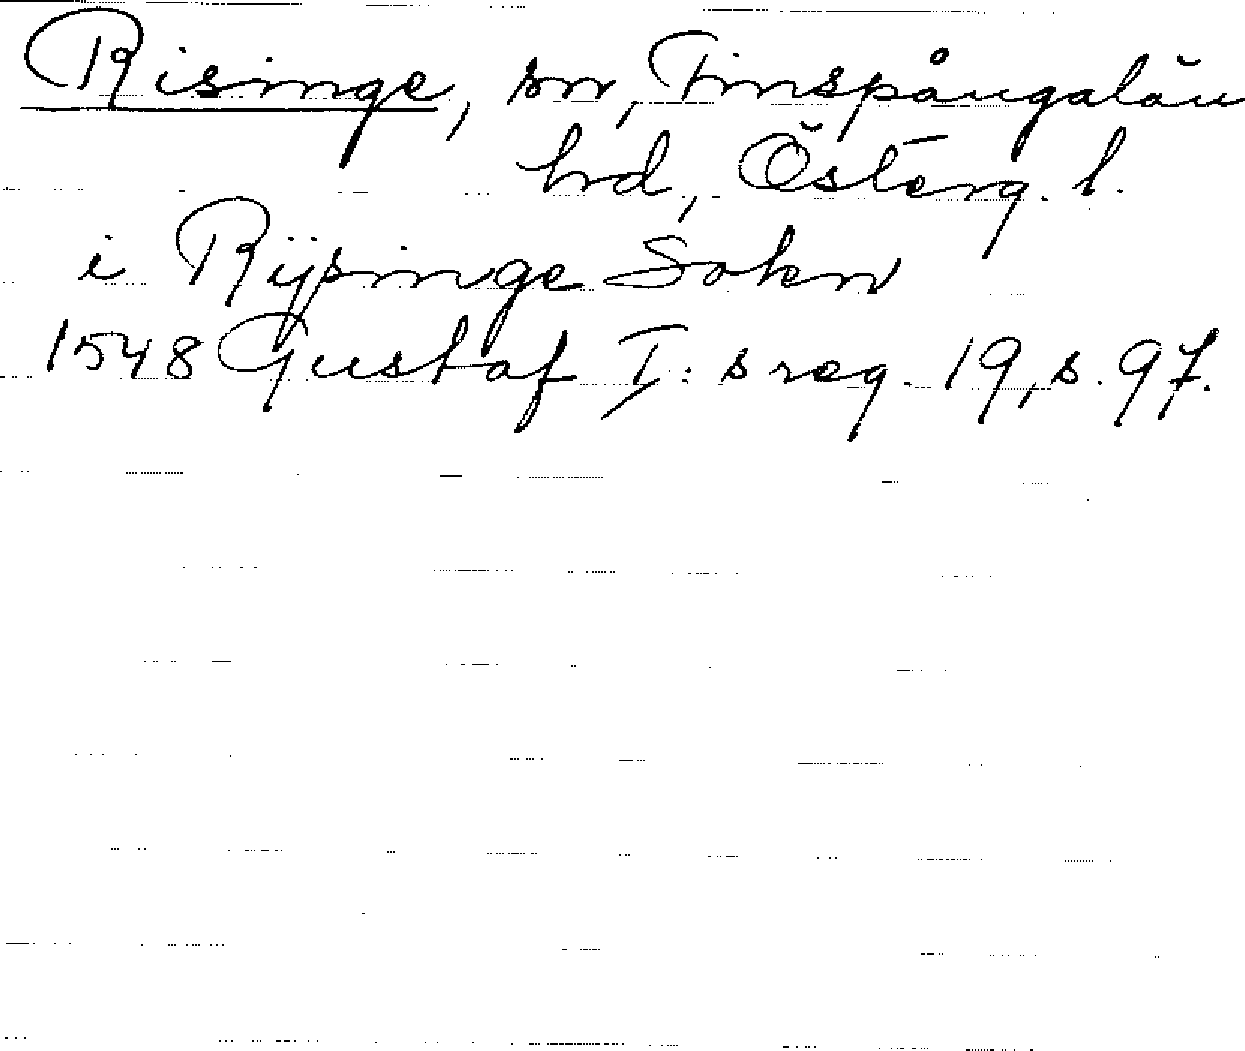 Risinge, sn, Finspångalän
hrd, Österg. l.
i Rijsinge Sokn
1548 Gustaf I:s reg. 19, s. 97.